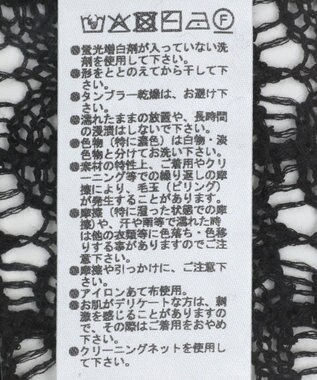 ◎蛍光増白剤が入っていない洗
剤を使用して下さい。
◎形をととのえてから干して下
さい。
◎タンブラー乾燥は、お避け下
さい。
◎濡れたままの放置や、長時間
の浸漬はしないで下さい。
◎色物（特に濃色）は白物・淡
色物と分けてお洗い下さい。
◎素材の特性上、ご着用やクリ
ーニング等での繰り返しの摩
擦により、毛玉（ピリング）
が発生することがあります。
◎摩擦（特に湿った状態での摩
擦）や、汗や雨等で濡れた時
は他の衣類等に色落ち・色移
りする事がありますのでご注
意下さい。
◎摩擦や引っかけに、ご注意下
さい。
◎アイロンあて布使用。
◎お肌がデリケートな方は、刺
激を感じることがありますの
で、その際はご着用をおやめ
下さい。
◎クリーニングネットを使用し
て下さい。